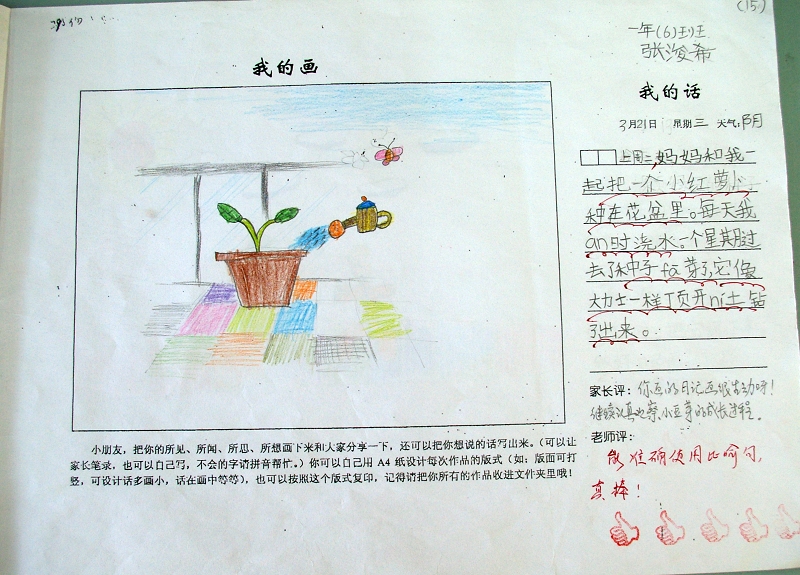 (15)
一年(6)班
张浚希
我的画
我的话
3月21日 星期三 天气:阴
上周三,妈妈和我一
起把一个小红萝卜
种在花盆里。每天我
an时浇水。个星期过
去了种子fā芽了,它像
大力士一样丁页开ní土钻
了出来。
家长评:你画的日记画很生动呀!
继续认真观察小豆芽的成长进程。
老师评:
能准确使用比喻句,
真棒!
小朋友,把你的所见、所闻、所思、所想画下来和大家分享一下,还可以把你想说的话写出来。(可以让
家长笔录,也可以自己写,不会的字请拼音帮忙。)你可以自己用 A4 纸设计每次作品的版式(如:版面可打
竖,可设计话多画小,话在画中等等),也可以按照这个版式复印,记得请把你所有的作品收进文件夹里哦!